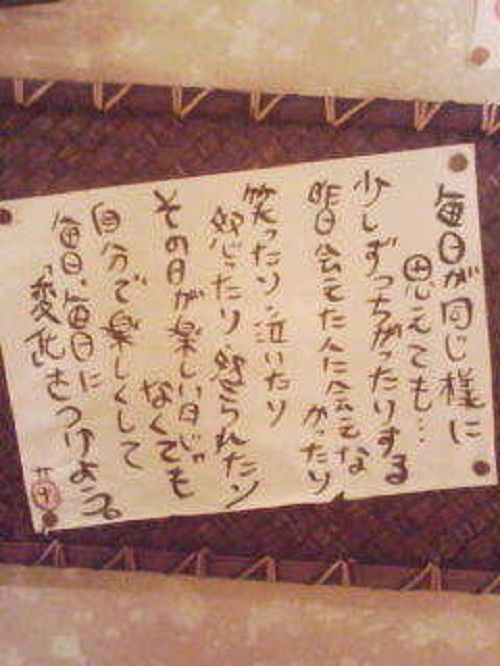 毎日が同じ様に
思えても…
少しずつちがったりする
昨日会えた人に会えな
かったり
笑ったり・泣いたり
怒ったり・怒られたり
その日が楽しい日じゃ
なくても
自分で楽しくして
毎日、毎日に
「変化をつけよう。